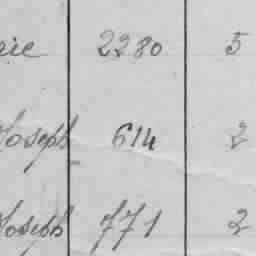 2280 5
Joseph 614 2
Joseph 771 2